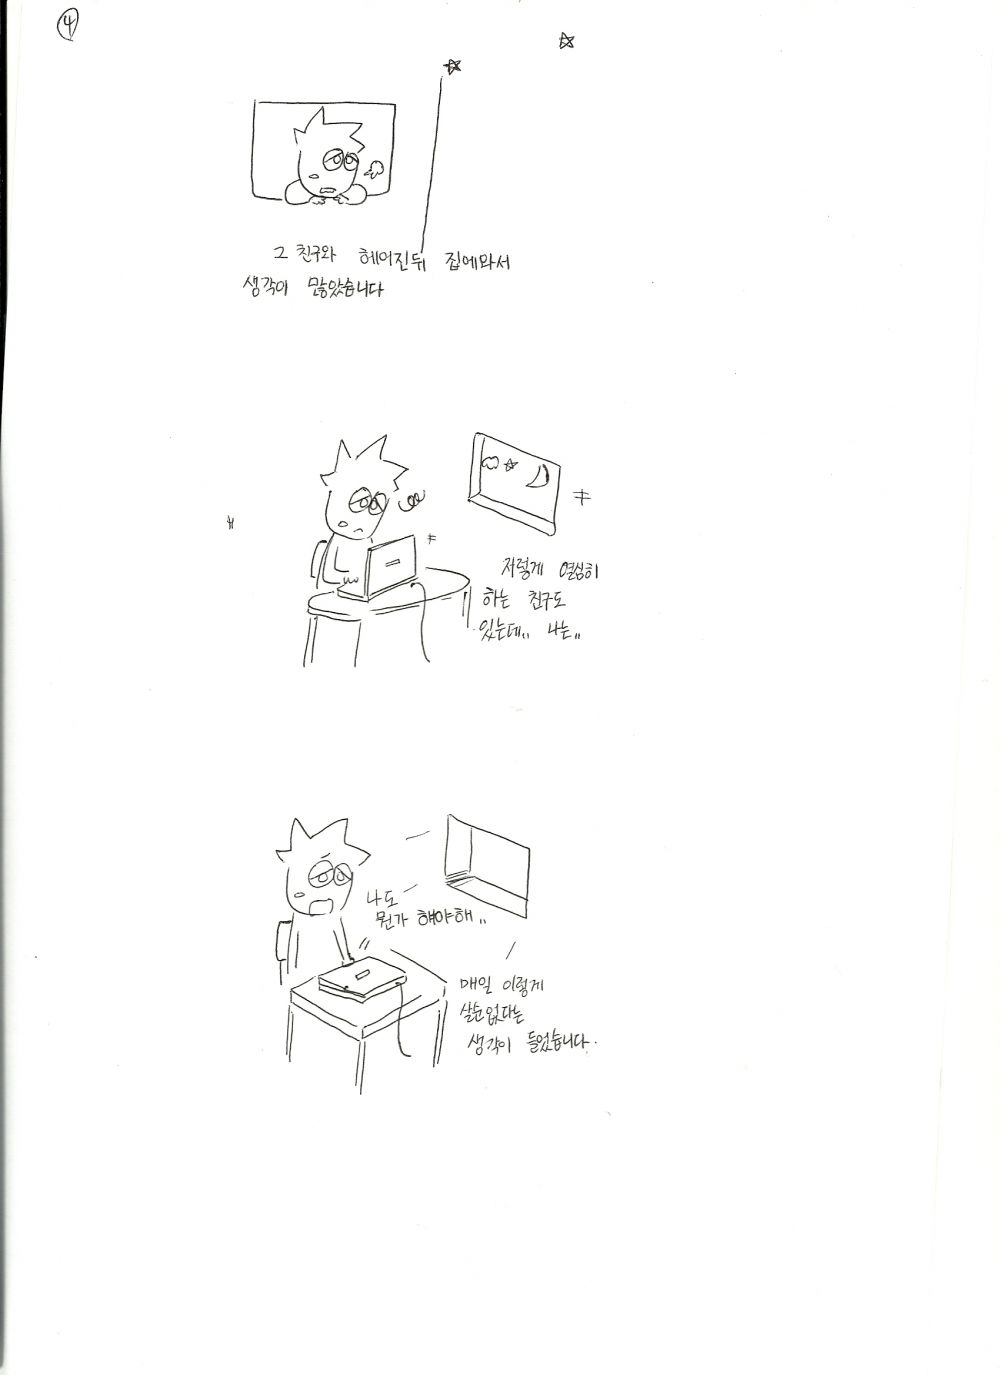 ④
그 친구와 헤어진뒤 집에와서
생각이 많았습니다
저렇게 열심히
하는 친구도
있는데,, 나는,,
나도
뭔가 해야해,,
매일 이렇게
살순없다는
생각이 들었습니다.